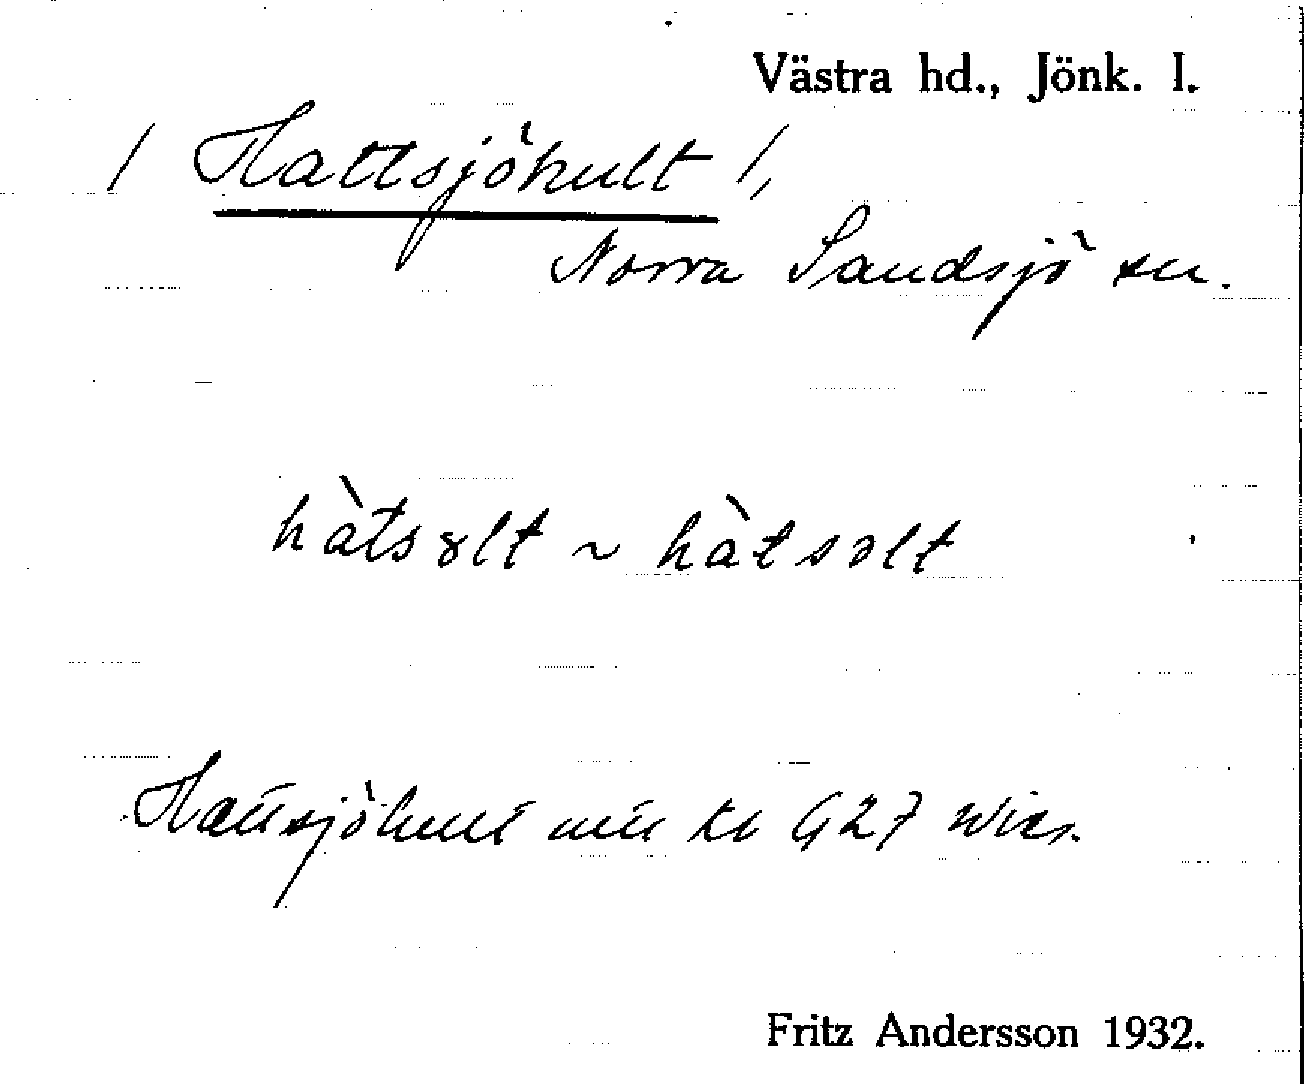 Västra hd., Jönk. l.
/ Hattsjöhult /,
Norra Sandsjö sn.
hàtsɤlt ~ hàtsəlt
Hattsjöhult
Fritz Andersson 1932.